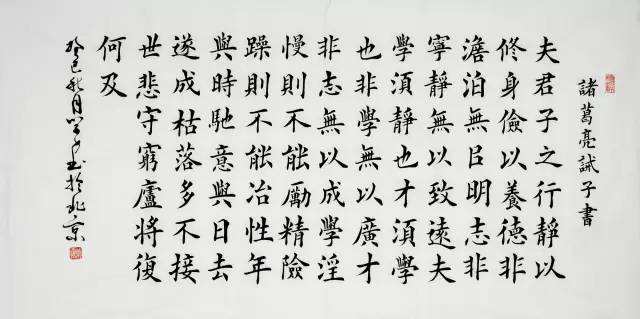 諸葛亮誡子書
夫君子之行靜以
修身儉以養德非
澹泊無以明志非
寧靜無以致遠夫
學須靜也才須學
也非學無以廣才
非志無以成學淫
慢則不能勵精險
躁則不能冶性年
與時馳意與日去
遂成枯落多不接
世悲守窮廬將復
何及
癸巳秋月書於北京